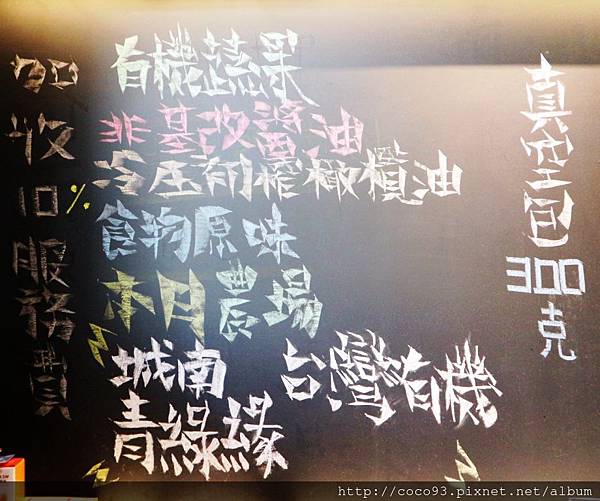 真空包300克
有機蔬果
非基改醬油
冷压初榨橄欖油
食物原味
木月農場
城南 台灣有機
青綠緣
加收10%服務費
http://coco93.pixnet.net/album